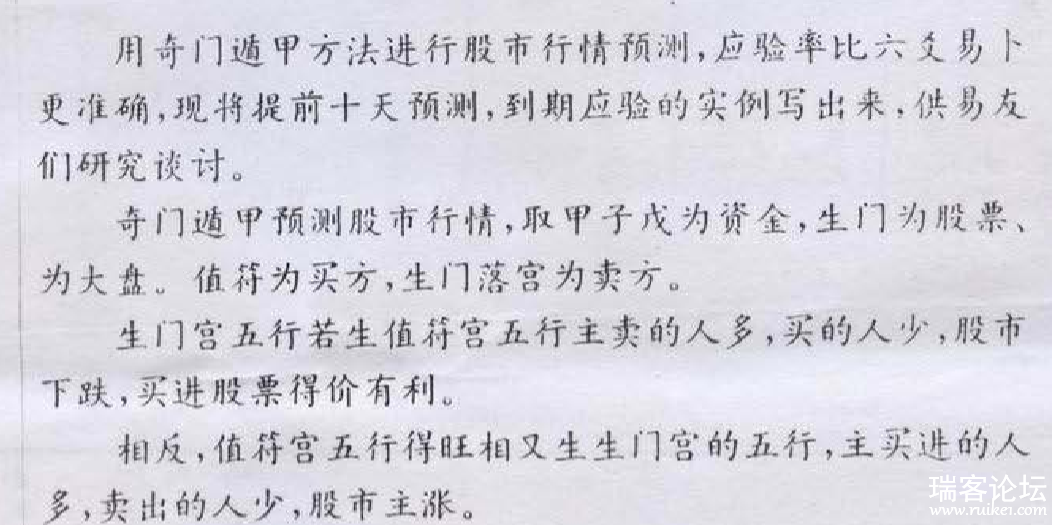 用奇门遁甲方法进行股市行情预测,应验率比六爻易卜
更准确,现将提前十天预测,到期应验的实例写出来,供易友
们研究谈讨。
奇门遁甲预测股市行情,取甲子戊为资金,生门为股票、
为大盘。值符为买方,生门落宫为卖方。
生门宫五行若生值符宫五行主卖的人多,买的人少,股市
下跌,买进股票得价有利。
相反,值符宫五行得旺相又生生门宫的五行,主买进的人
多,卖出的人少,股市主涨。
瑞客论坛
www.ruikei.com